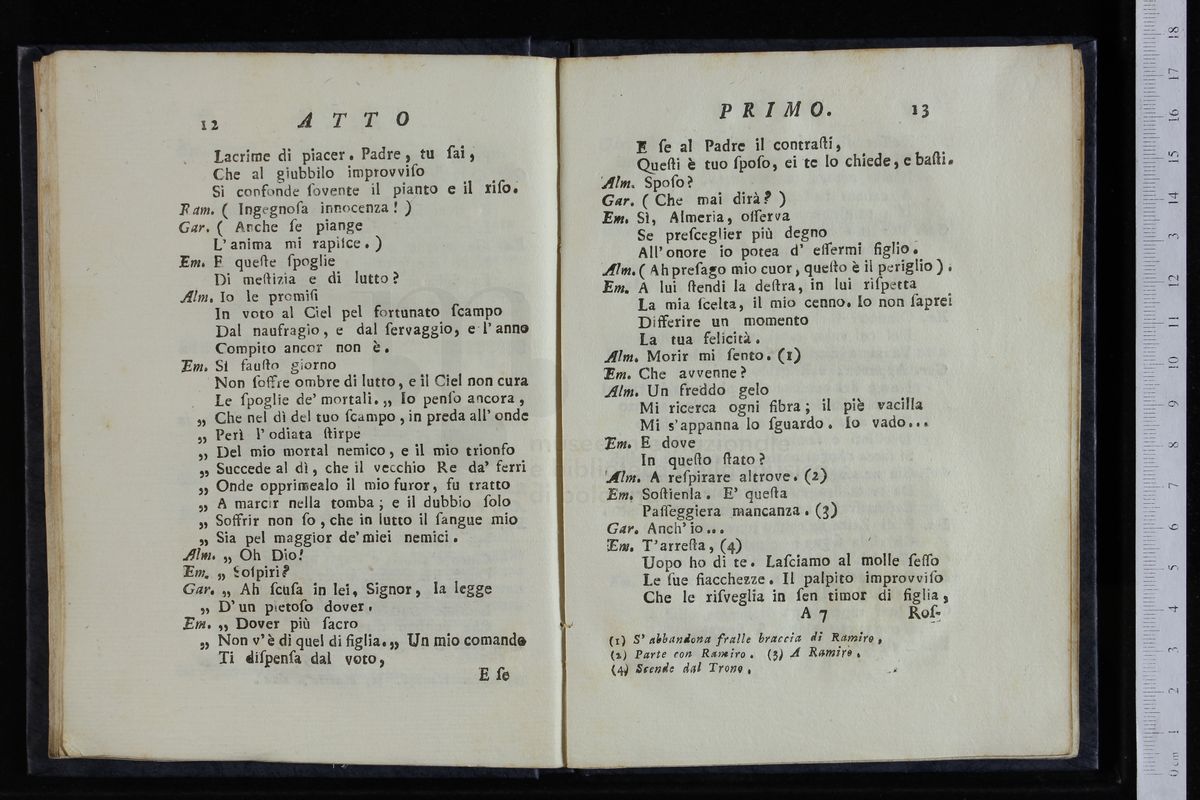 12 ATTO
Lacrime di piacer. Padre, tu ſai,
Che al giubbilo improvviſo
Si confonde ſovente il pianto e il riſo.
Ram. ( Ingegnoſa innocenza! )
Gar. ( Anche ſe piange
L'anima mi rapiſce. )
Em. E queſte ſpoglie
Di meſtizia e di lutto?
Alm. Io le promiſi
In voto al Ciel pel fortunato ſcampo
Dal naufragio, e dal ſervaggio, e l'anno
Compito ancor non è.
Em. Sì fauſto giorno
Non ſoffre ombre di lutto, e il Ciel non cura
Le ſpoglie de' mortali. „ Io penſo ancora,
„ Che nel dì del tuo ſcampo, in preda all' onde
„ Perì l' odiata ſtirpe
„ Del mio mortal nemico, e il mio trionfo
„ Succede al dì, che il vecchio Re da' ferri
„ Onde opprimealo il mio furor, fu tratto
„ A marcir nella tomba; e il dubbio ſolo
„ Soffrir non ſo, che in lutto il ſangue mio
„ Sia pel maggior de' miei nemici.
Alm. „ Oh Dio!
Em. „ Soſpiri?
Gar. „ Ah ſcuſa in lei, Signor, la legge
„ D' un pietoſo dover.
Em. „ Dover più ſacro
„ Non v'è di quel di figlia. „ Un mio comando
Ti diſpenſa dal voto,
E ſe
PRIMO. 13
E ſe al Padre il contraſti,
Queſti è tuo ſpoſo, ei te lo chiede, e baſti.
Alm. Spoſo?
Gar. ( Che mai dirà? )
Em. Sì, Almeria, oſſerva
Se preſceglier più degno
All' onore io potea d' eſſermi figlio.
Alm. ( Ah preſago mio cuor, queſto è il periglio ).
Em. A lui ſtendi la deſtra, in lui riſpetta
La mia ſcelta, il mio cenno. Io non ſaprei
Differire un momento
La tua felicità.
Alm. Morir mi ſento. (1)
Em. Che avvenne?
Alm. Un freddo gelo
Mi ricerca ogni fibra; il piè vacilla
Mi s'appanna lo ſguardo. Io vado...
Em. E dove
In queſto ſtato?
Alm. A reſpirare altrove. (2)
Em. Soſtienla. E' queſta
Paſſeggiera mancanza. (3)
Gar. Anch' io...
Em. T'arreſta, (4)
Uopo ho di te. Laſciamo al molle ſeſſo
Le ſue fiacchezze. Il palpito improvviſo
Che le riſveglia in ſen timor di figlia,
A 7 Roſ-
(1) S' abbandona fralle braccia di Ramiro,
(2) Parte con Ramiro. (3) A Ramiro.
(4) Scende dal Trono,